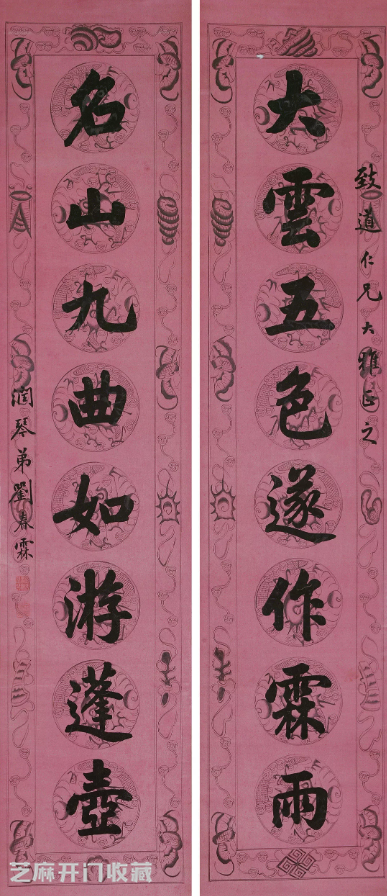 致道仁兄大雅正之
大雲五色遂作霖雨
名山九曲如游蓬壺
潤琴弟劉春霖
芝麻开门收藏